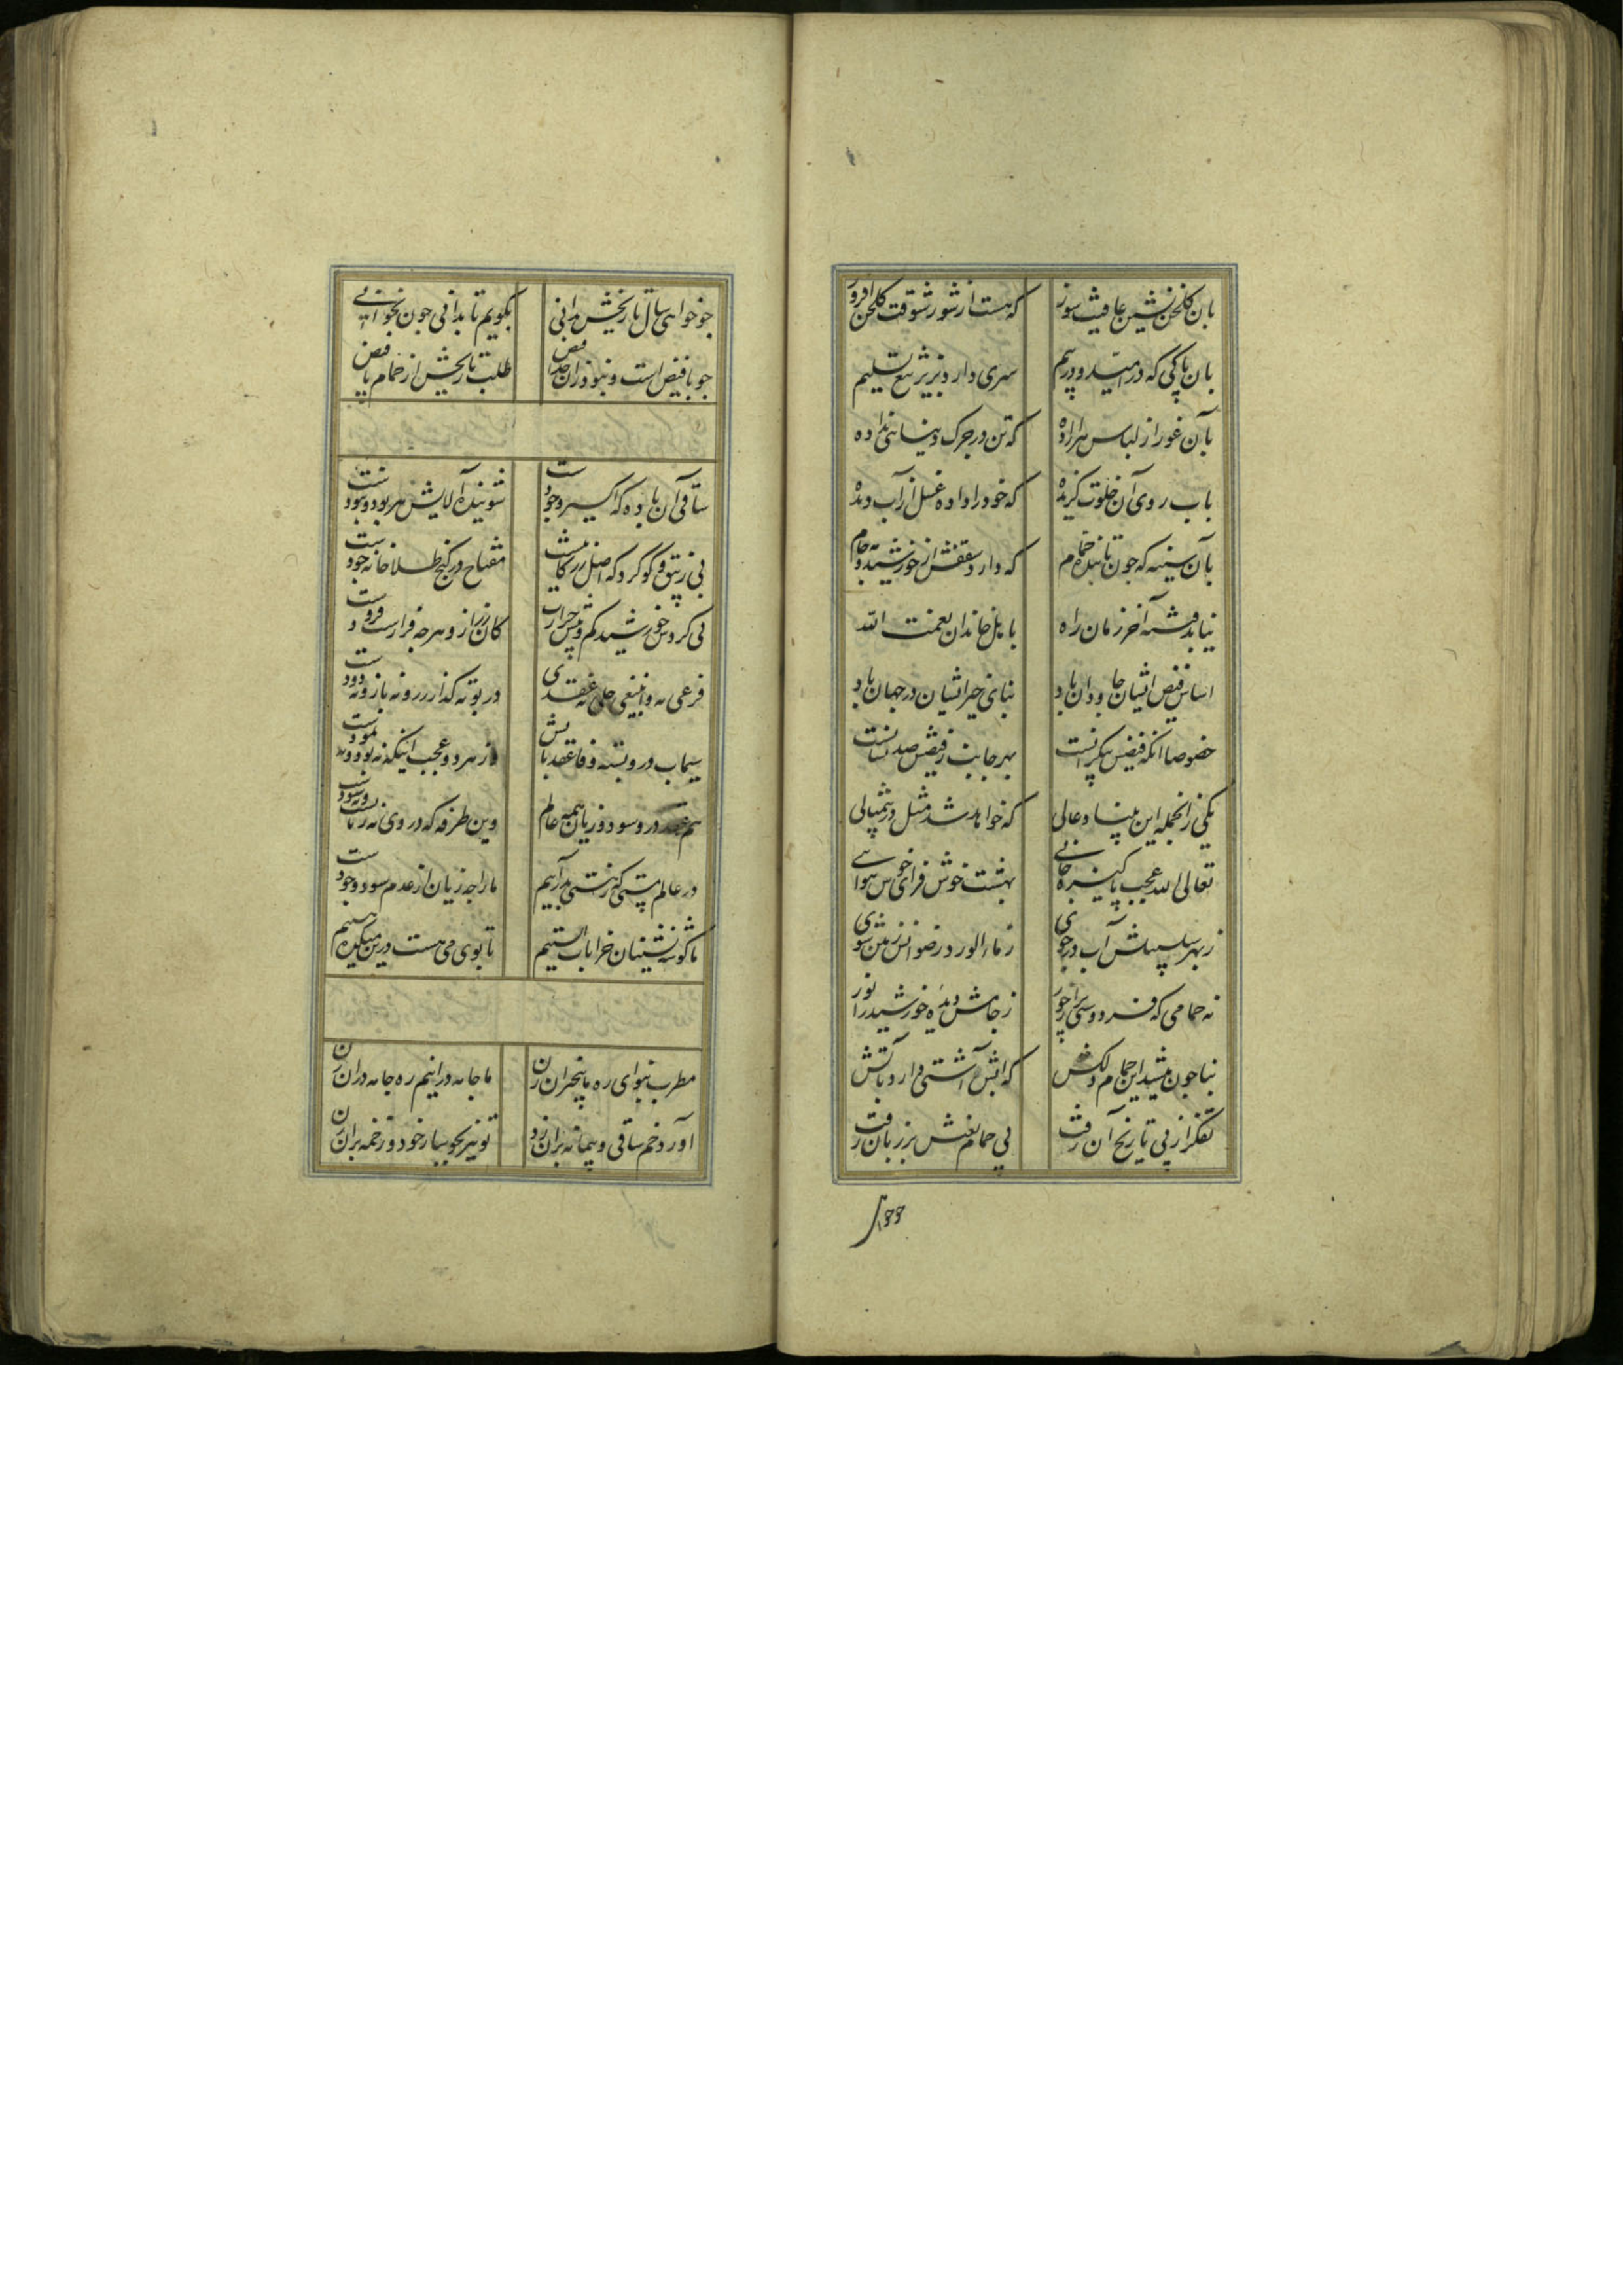 بان کلخن نشین عافیت سوز که هست از شور شوقت کلخن افروز
بان پاکی که در امید و در بیم سری دارد بزیر تیغ تسلیم
بآن عور از لباس هر اراده که تن در چرک دنیا نداده
باب روی آن خلوت کزیده که خود را داده غسل از آب دیده
بآن سینه که چون تابنده حمام که دارد سقفش از خورشید و مه جام
نیابد فتنه آخر زمان راه باهل خاندان نعمت الله
اساس فیض ایشان جاودان باد بنای خیر ایشان در جهان باد
خصوصا انکه فیض بیکرانست بهر جانب ز فیضش صد نشانست
یکی زانجمله این بنیاد عالی که خواهد شد مثل در بیمثالی
تعالی الله عجب پاکیزه جایی بهشت خوش فزای خوش هوایی
ز بهر سلسبیلش آب در جوی ز ماء الورد رضوانش زمین شوی
نه حمامی که فردوسی پر از حور ز جامش دیده خورشید را نور
بنا چون میشد این حمام دلکش که آبش آشتی دارد باتش
تفکر از پی تاریخ آن رفت پی حمام نغش بر زبان رفت
چو خواهی سال تاریخش بدانی بکویم تا بدانی چون نخوانی
چو با فیض است و نبود زان جدا فیض طلب تاریخش از حمام با فیض
ساقی آن باده که اکسیر وجودست شوینده آلایش هر بود و نبودست
بی زیبق و کوکرد که اصل زر کانیست مفتاح در کنج طلا خانه جودست
بی کردش خورشید کم و بیش حرارت کان زر ازو هر چه فرازست و فرودست
قرعی نه و انبیقی و حلی نه و عقدی در بوته کذار زر و نه نار و نه دودست
سیماب درو بسته وفا عقد باتش از هر دو عجب اینکه نه بود و نه نمودست
هم عهد درو سود و زیان همه عالم وین طرفه که در وی نه زیانست و نه سودست
در عالم هستی که ز هستی بدر آییم ما را چه زیان از عدم سود وجودست
ما کوشه نشینان خرابات الستیم تا بوی می هست درین میکده هستیم
مطرب بنوای ره ما بیخبران زن ما جامه درانیم ره جامه دران زن
آورد خم ساقی و پیمانه بران زد تو نیز بجو ساز خود و زخمه بران زن